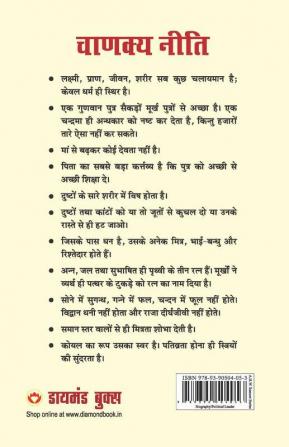 चाणक्य नीति
• लक्ष्मी, प्राण, जीवन, शरीर सब कुछ चलायमान है;
केवल धर्म ही स्थिर है।
• एक गुणवान पुत्र सैकड़ों मूर्ख पुत्रों से अच्छा है। एक
चन्द्रमा ही अन्धकार को नष्ट कर देता है, किन्तु हजारों
तारे ऐसा नहीं कर सकते।
• मां से बढ़कर कोई देवता नहीं है।
• पिता का सबसे बड़ा कर्त्तव्य है कि पुत्र को अच्छी से
अच्छी शिक्षा दे।
• दुष्टों के सारे शरीर में विष होता है।
• दुष्टों तथा कांटों को या तो जूतों से कुचल दो या उनके
रास्ते से ही हट जाओ।
• जिसके पास धन है, उसके अनेक मित्र, भाई-बन्धु और
रिश्तेदार होते हैं।
• अन्न, जल तथा सुभाषित ही पृथ्वी के तीन रत्न हैं। मूर्खों ने
व्यर्थ ही पत्थर के टुकड़े को रत्न का नाम दिया है।
• सोने में सुगन्ध, गन्ने में फल, चन्दन में फूल नहीं होते।
विद्वान धनी नहीं होता और राजा दीर्घजीवी नहीं होते।
• समान स्तर वालों से ही मित्रता शोभा देती है।
• कोयल का रूप उसका स्वर है। पतिव्रता होना ही स्त्रियों
की सुन्दरता है।
डायमंड बुक्स
Shop online at www.diamondbook.in
ISBN 978-93-90504-05-3
Biography/Political Leader